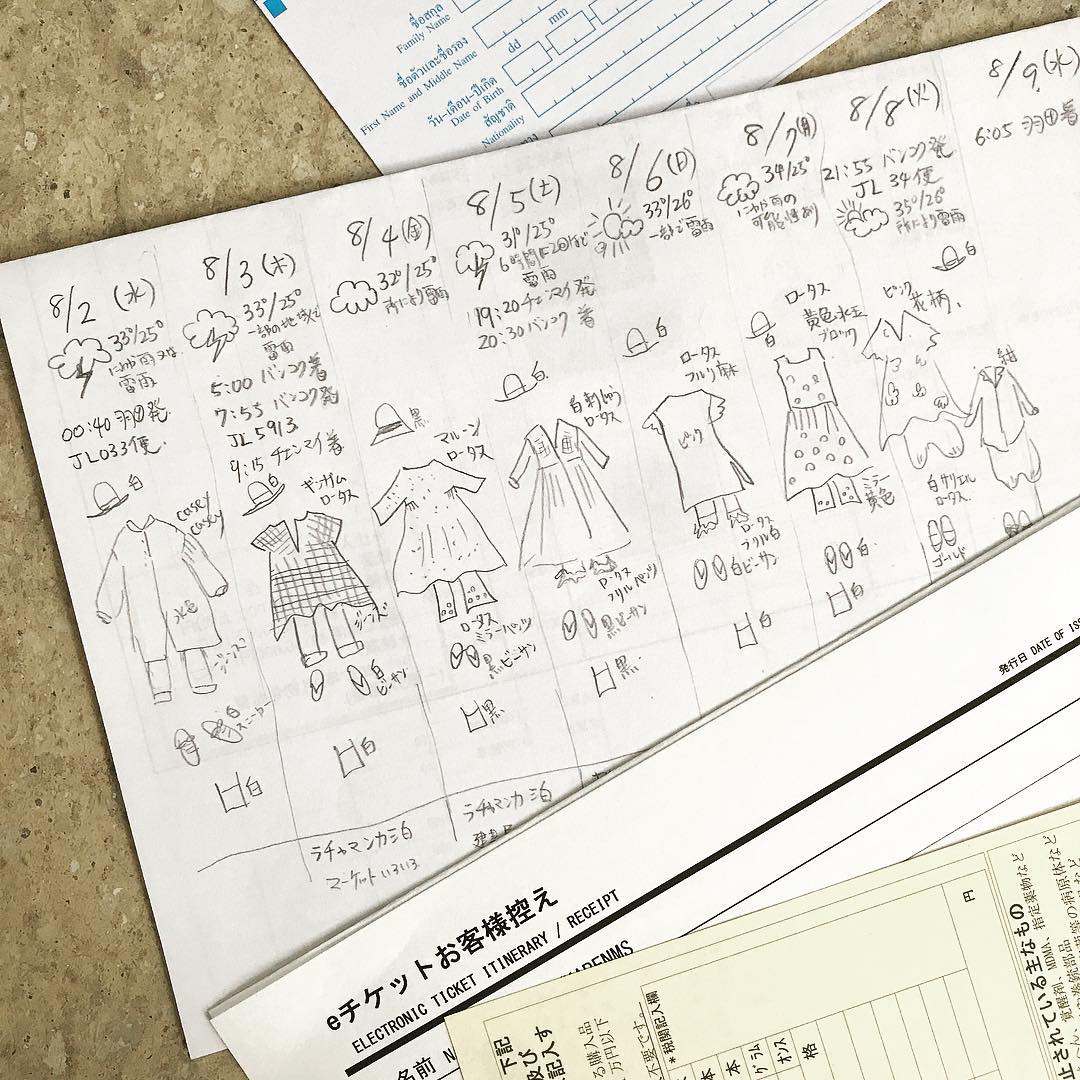 ชื่อสกุล
Family Name
ชื่อตัวและชื่อรอง
First Name and Middle Name
dd
mm
วัน-เดือน-ปีเกิด
Date of Birth
สัญชาติ
Nationality
8/2 (水)
33°/25°
にわか雨又は
雷雨
00:40 羽田発
JL033便
白
casey
casey
水色
ジーンズ
白
スニーカー
白
8/3 (木)
33°/25°
一部の地域で
雷雨
5:00 バンコク着
7:55 バンコク発
JL5913
9:15 チェンマイ着
白
ギンガム
ロータス
ジーンズ
白
ビーサン
白
ラチャマンカ泊
マーケットいろいろ
8/4 (金)
32°/25°
所により雷雨
黒
マルーン
ロータス
ロータス
ミラーパンツ
黒ビーサン
黒
ラチャマンカ泊
8/5 (土)
31°/25°
6時間に2回ほど
雷雨
19:20 チェンマイ発
20:30 バンコク着
白
白刺しゅう
ロータス
ロータス
フリルパンツ
黒ビーサン
黒
8/6 (日)
33°/26°
一部で雷雨
白
ロータス
フルリ麻
ピンク
ロータス
フリル白
白ビーサン
白
8/7 (月)
34/25°
にわか雨の
可能性あり
白
ロータス
黄色水玉
ブロック
ミラー
黄色
白
白
8/8 (火)
21:55 バンコク発
JL 34便
35°/26°
所により雷雨
白
ピンク
花柄
白サリエル
ロータス
ゴールド
8/9 (水)
6:05 羽田着
紺
発行日 DATE OF ISS
eチケットお客様控え
ELECTRONIC TICKET ITINERARY / RECEIPT
名前 N
下記
及び
記入す
る購入品
万円以下
不要です。
*税関記入欄
本
本
グラム
オンス
格
円
止されている主なもの
覚醒剤、MDMA、指定薬物など